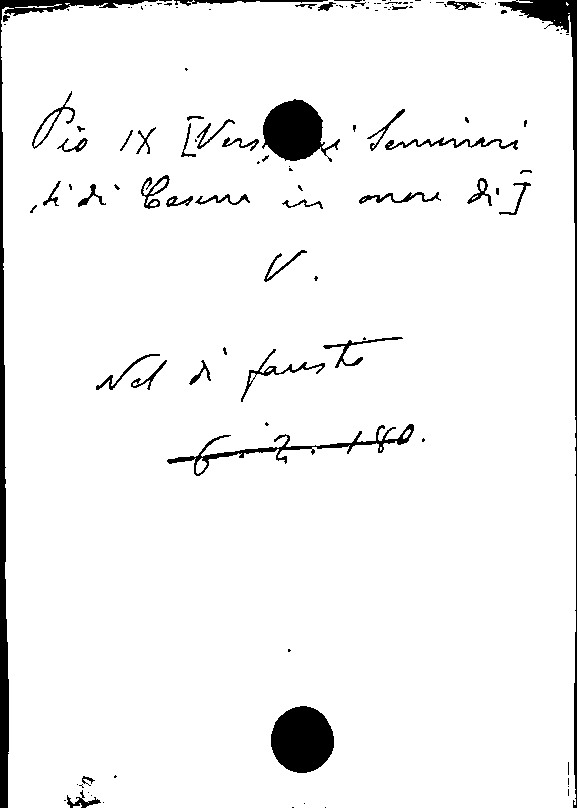 Pio IX [Versi dei Seminari
sti di Cesena in onore di]
V.
Nel dì fausto
6. 2. 180.